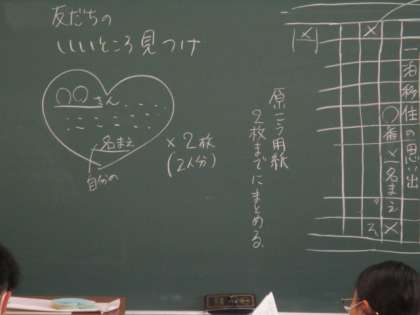 友だちの
いいところ見つけ
〇〇さん
名まえ
自分の
×2枚
(2人分)
原こう用紙
2枚までにまとめる
の思い出
〇番×名まえ